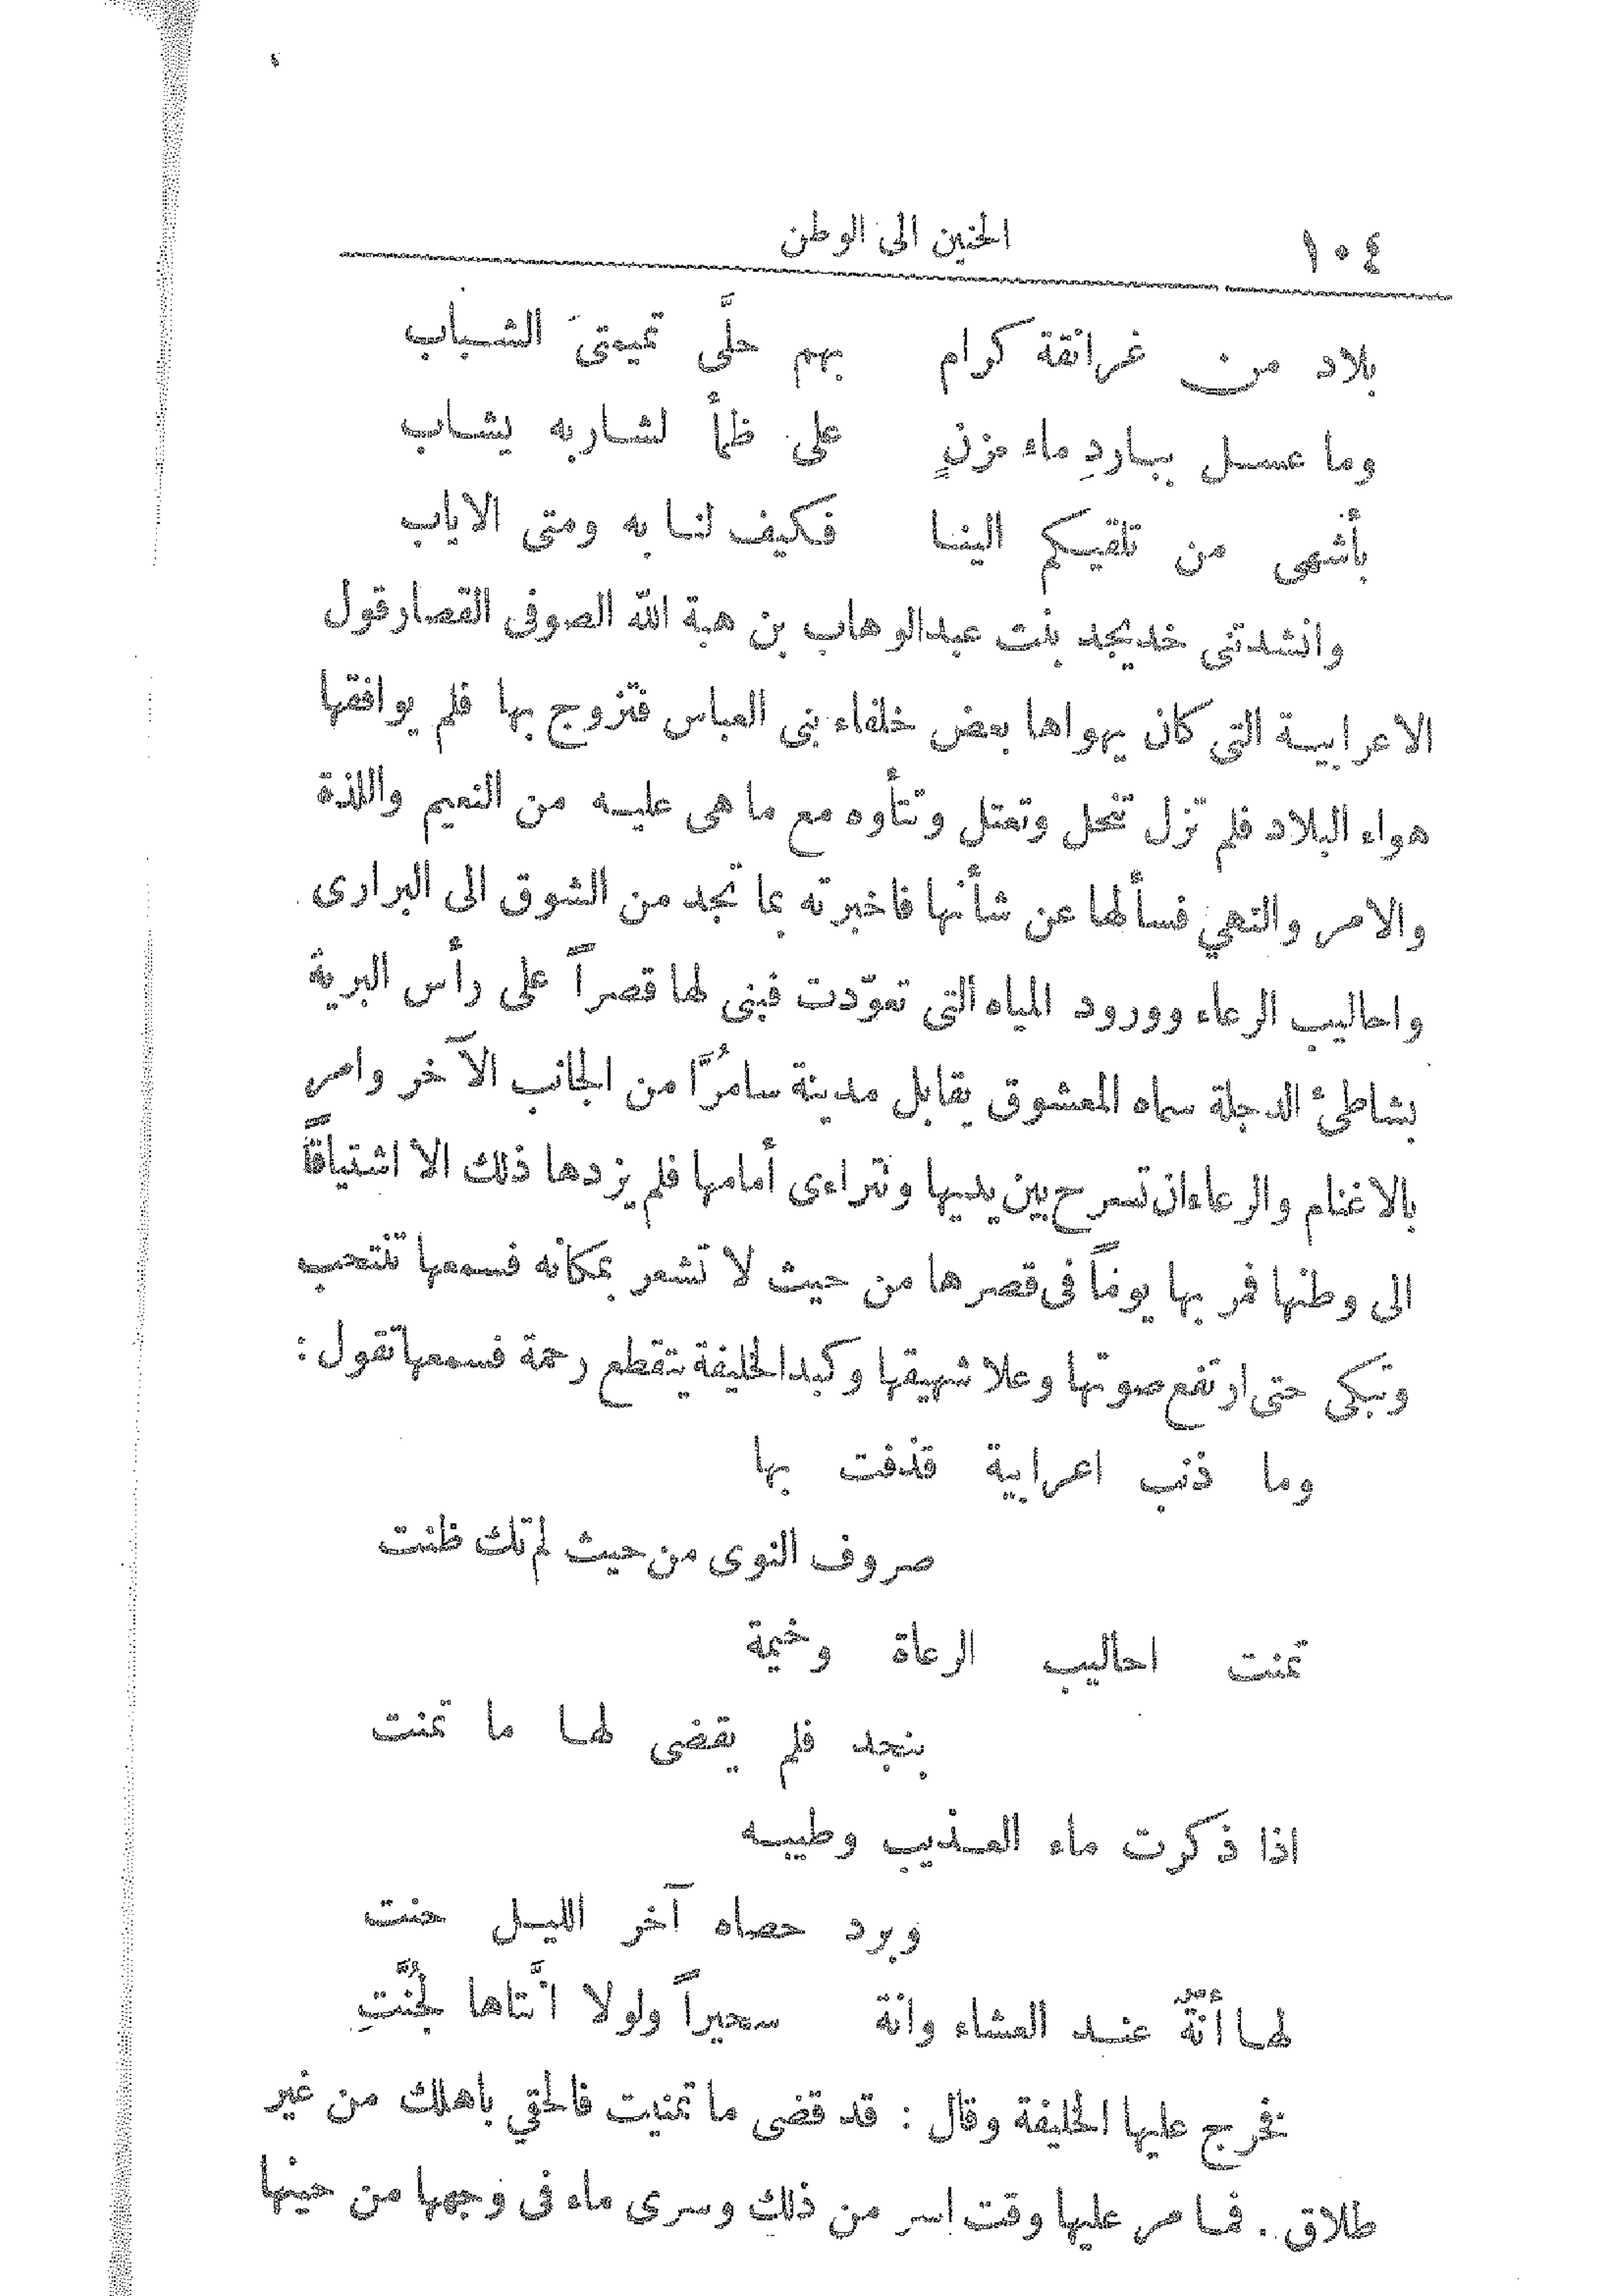 ١٠٤ الحنين الى الوطن
بلاد من غرانقة كرام بهم حلَّى تميمتىَ الشباب
وما عسل ببارد ماء مزنٍ على ظمأ لشاربه يشاب
بأشهى من تلقيكم الينا فكيف لنا به ومتى الاياب
وانشدتنى خديجد بنت عبدالوهاب بن هبة الله الصوفى القصارقول
الاعرابية التى كان يهواها بعض خلفاء بنى العباس فتزوج بها فلم يوافقها
هواء البلاد فلم تزل تنحل وتعتل وتتأوه مع ما هى عليه من النعيم واللذة
والامر والنهي فسألها عن شأنها فاخبرته بما تجد من الشوق الى البرارى
واحاليب الرعاء وورود المياه التى تعوّدت فبنى لها قصراً على رأس البرية
بشاطئ الدجلة سماه المعشوق يقابل مدينة سامُرَّا من الجانب الآخر وامر
بالاغنام والرعاءان تسرح بين يديها وتتراءى أمامها فلم يزدها ذلك الا اشتياقاً
الى وطنها فمر بها يوماً فى قصرها من حيث لا تشعر بمكانه فسمعها تنتحب
وتبكى حتى ارتفع صوتها وعلا شهيقها وكبد الخليفة يتقطع رحمة فسمعها تقول :
وما ذنب اعرابية قذفت بها
صروف النوى من حيث لم تك ظنت
تمنت احاليب الرعاة وخيمة
بنجد فلم يقضى لها ما تمنت
اذا ذكرت ماء العذيب وطيبه
وبرد حصاه آخر الليل حنت
لها أنةٌ عند العشاء وانة سحيراً ولولا انَّتاها لجُنَّتِ
فخرج عليها الخليفة وقال : قد قضى ما تمنيت فالحقي باهلك من غير
طلاق . فما مر عليها وقت اسر من ذلك وسرى ماء فى وجهها من حينها